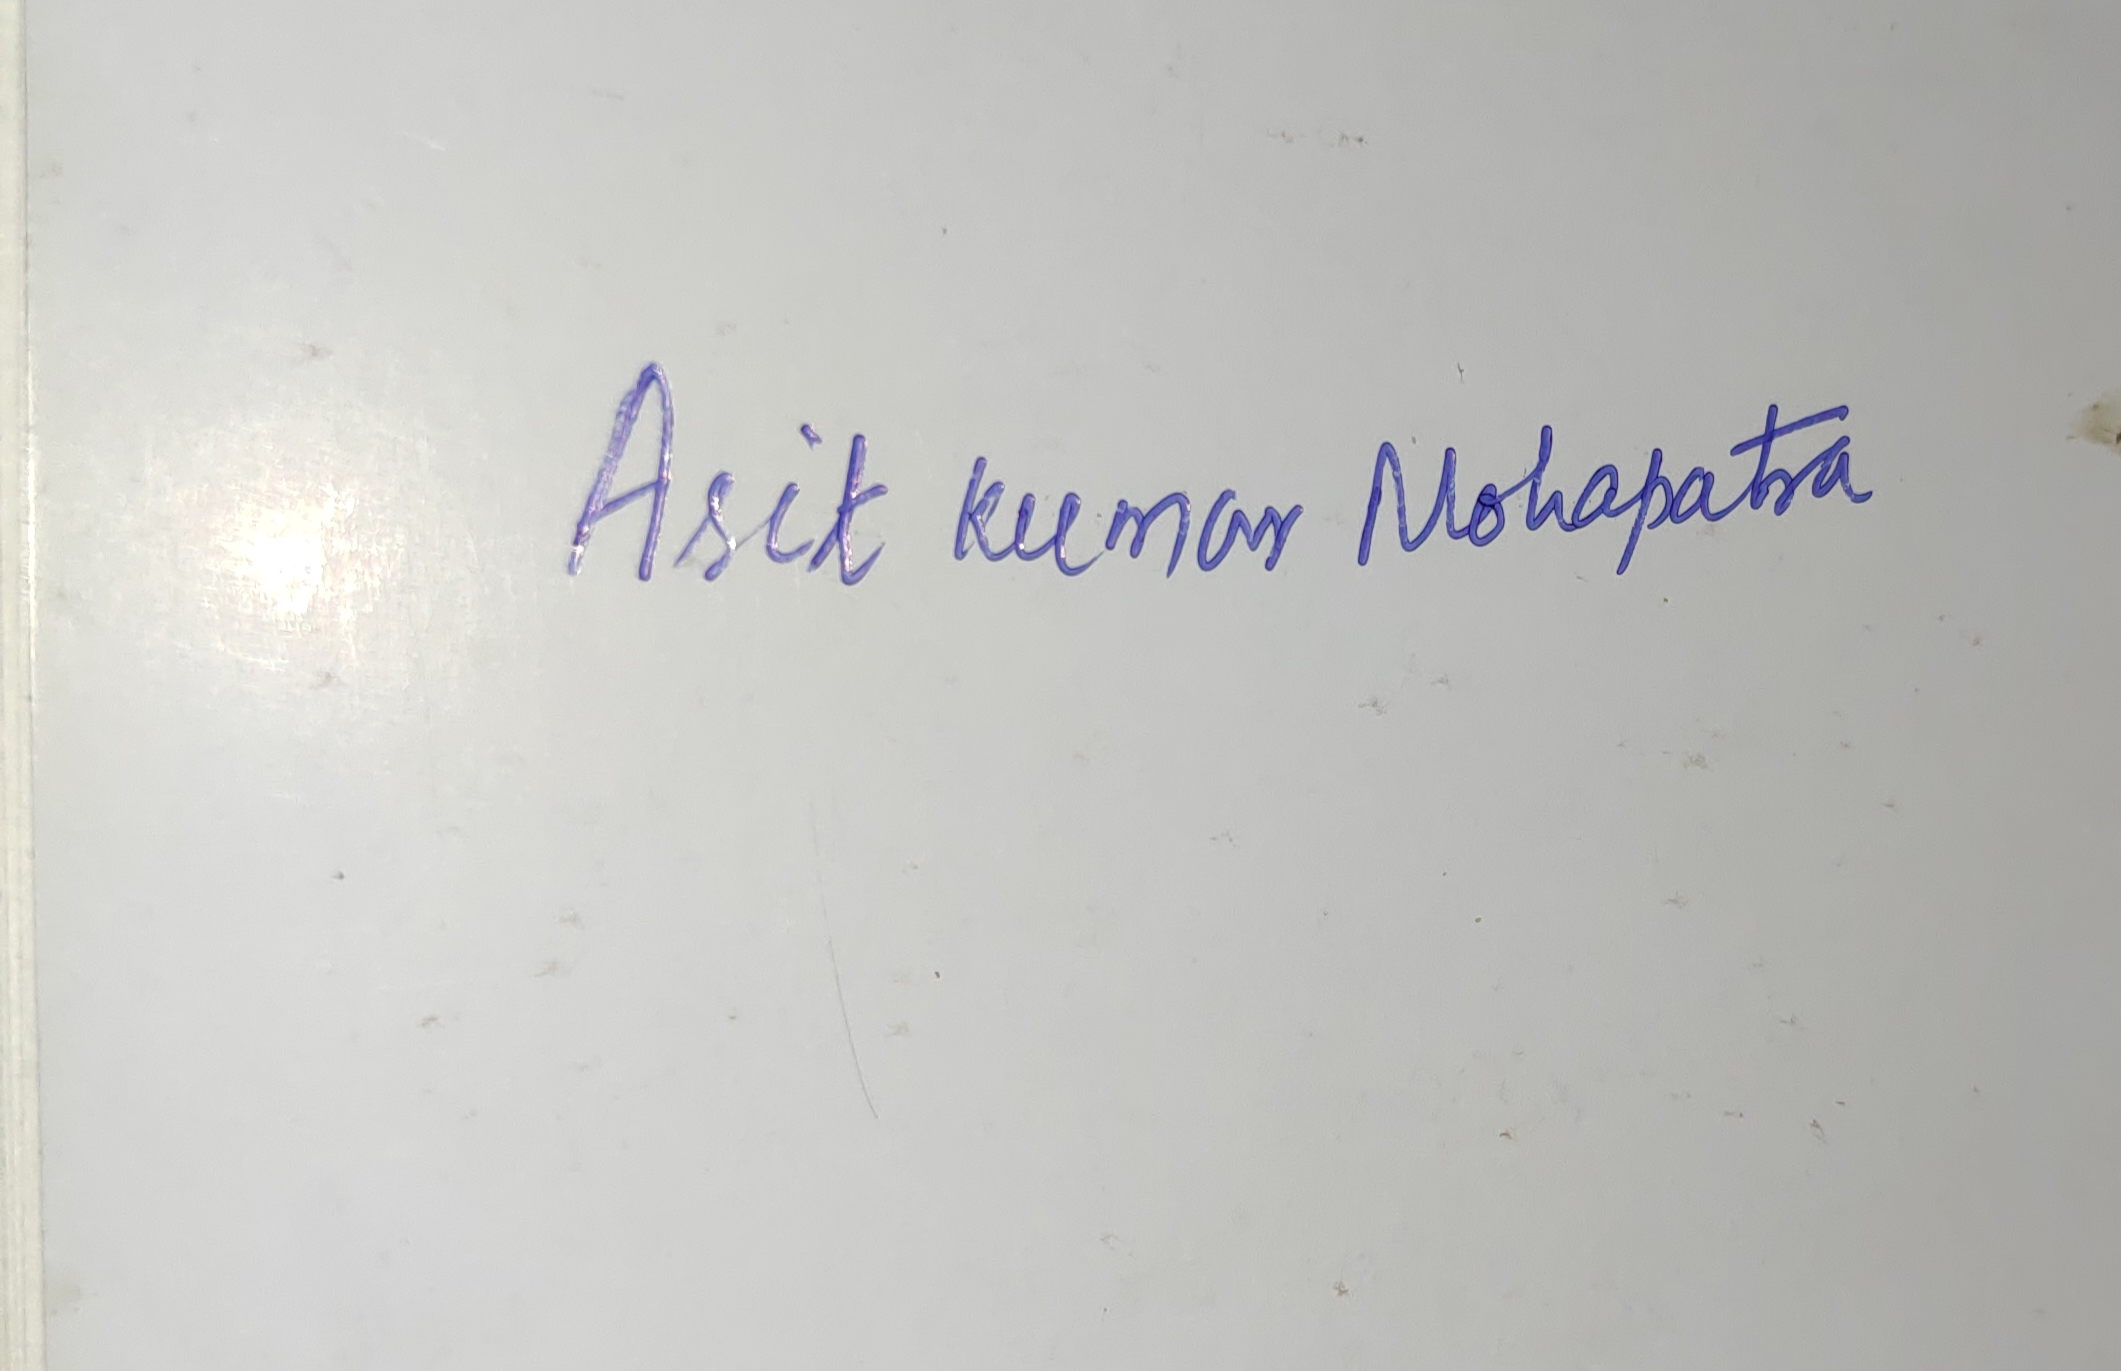 Asit kumar Mohapatra